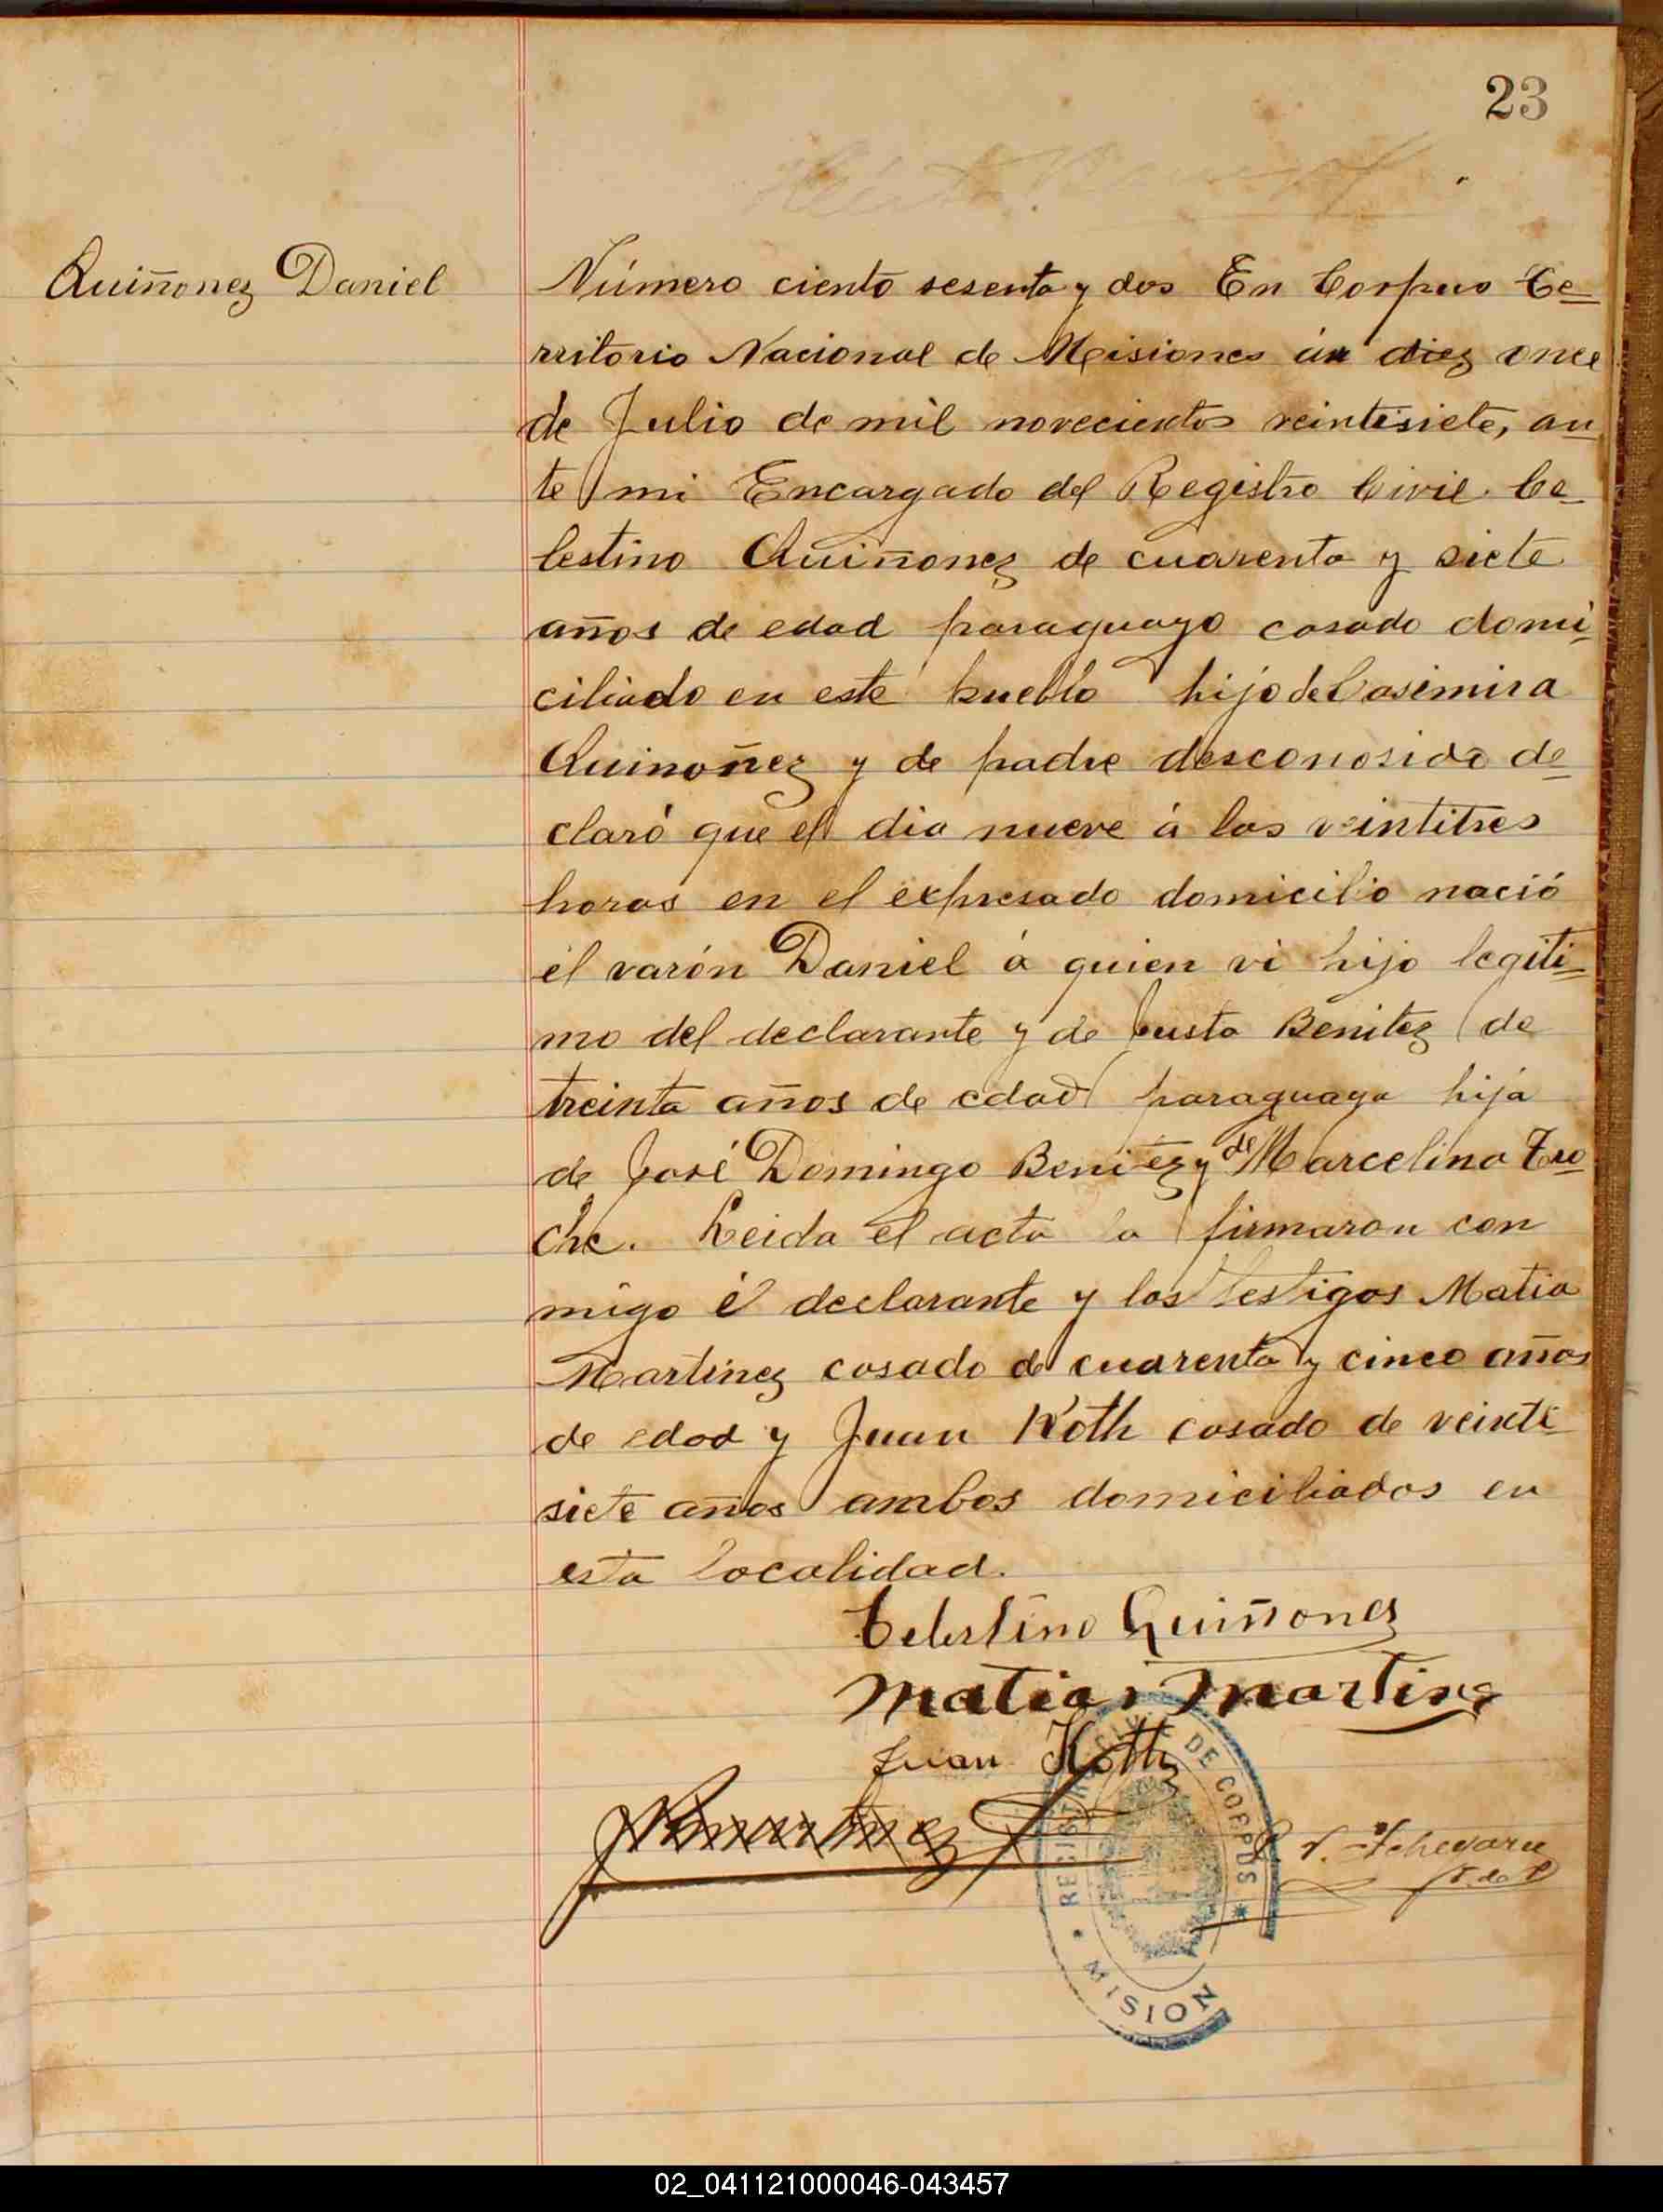 23
Quiñonez Daniel
Número ciento sesenta y dos En Corpus Te-
rritorio Nacional de Misiones á diez once
de Julio de mil novecientos veintisiete, an
te mi Encargado del Registro Civil. Ce-
lestino Quiñonez de cuarenta y siete
años de edad paraguayo casado domi-
ciliado en este pueblo hijo de Casimira
Quinoñez y de padre desconosido de-
claró que el dia nueve á las veintitres
horas en el expresado domicilio nació
el varón Daniel á quien vi hijo legiti-
mo del declarante y de Justa Benitez de
treinta años de edad paraguaya hija
de José Domingo Benitez y de Marcelina Tro-
che. Leida el acta la firmaron con
migo el declarante y los testigos Matia
Martinez casado de cuarenta y cinco años
de edad y Juan Koth casado de veinti
siete años ambos domiciliados en
esta localidad.
Celestino Quiñonez
Matias Martinez
Juan Koth
REGISTRO CIVIL DE CORPUS * MISION
02_041121000046-043457